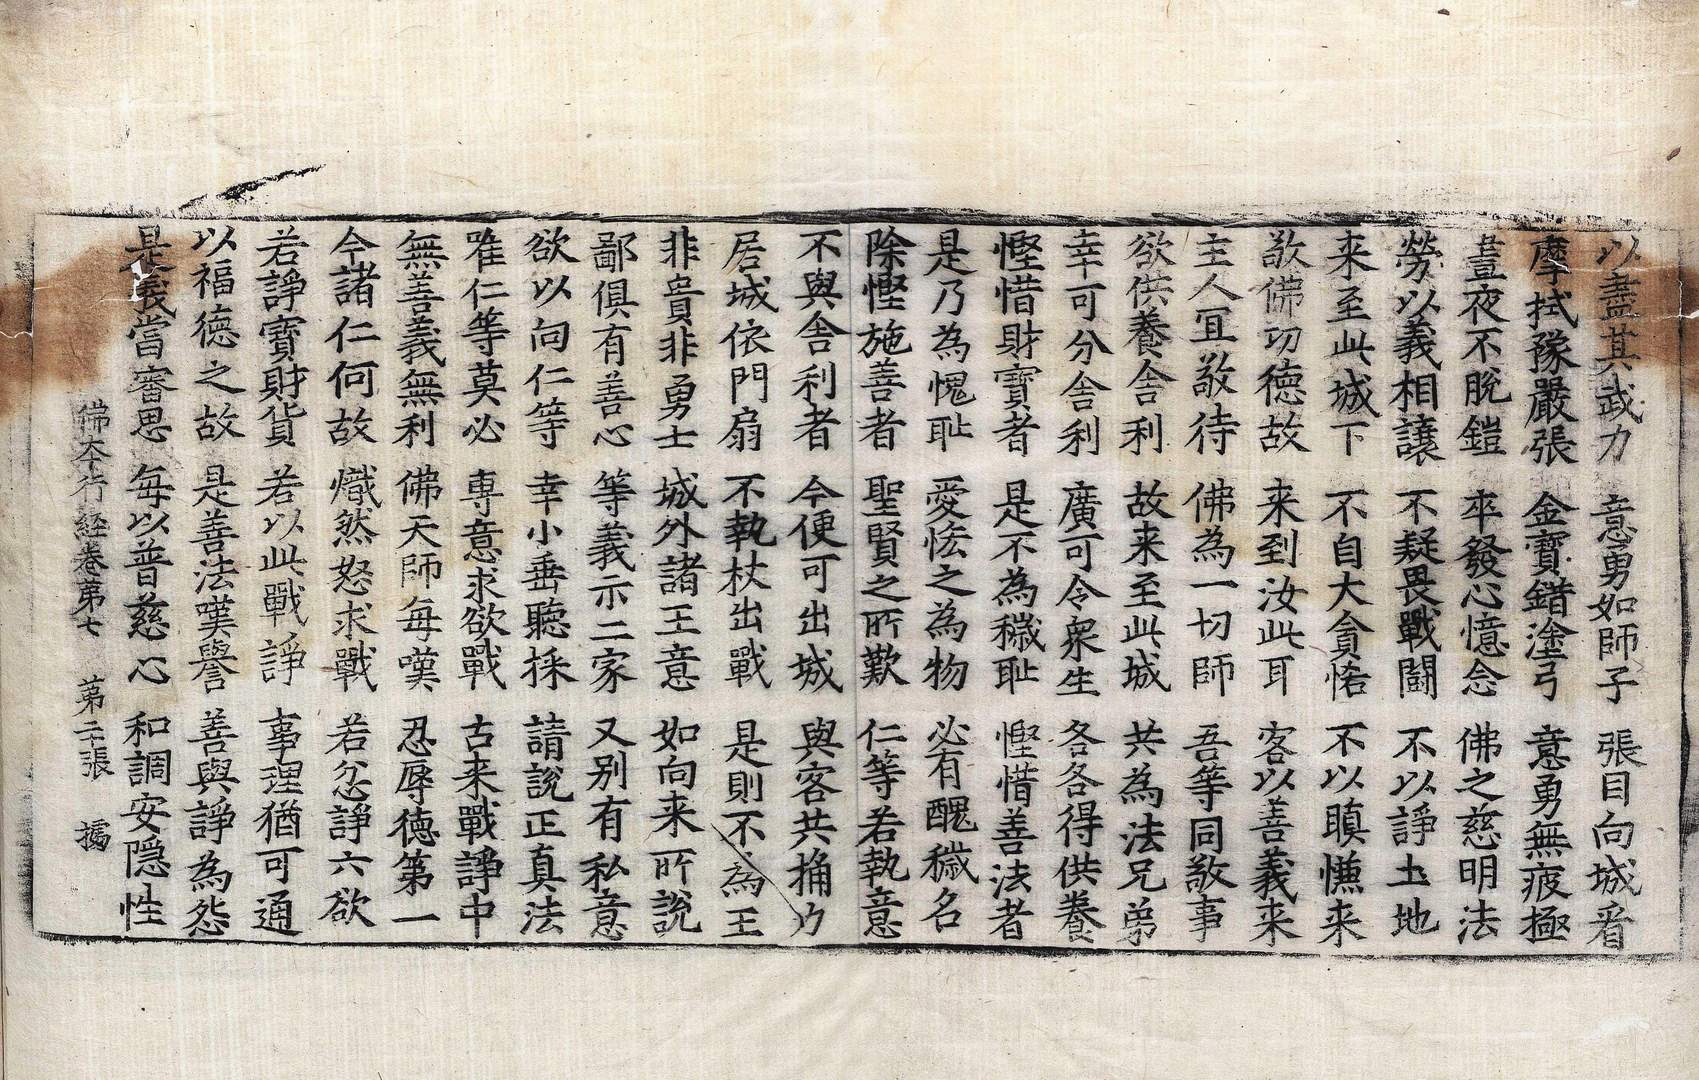 以盡其武力　意勇如師子　張目向城看
摩拭豫嚴張　金寶錯塗弓　意勇無疲極
晝夜不脫鎧　卒發心憶念　佛之慈明法
勞以義相讓　不疑畏戰鬪　不以諍土地
来至此城下　不自大貪悋　不以瞋慊来
敬佛功德故　来到汝此耳　客以善義来
主人宜敬待　佛為一切師　吾等同敬事
欲供養舍利　故来至此城　共為法兄弟
幸可分舍利　廣可令衆生　各各得供養
慳惜財寶者　是不為穢恥　慳惜善法者
是乃為愧恥　愛恡之為物　必有醜穢名
除慳施善者　聖賢之所歎　仁等若執意
不與舍利者　今便可出城　與客共捔力
居城依門扇　不執杖出戰　是則不為王
非貴非勇士　城外諸王意　如向来所說
鄙俱有善心　等義示二家　又别有私意
欲以向仁等　幸小垂聽採　請說正真法
唯仁等莫必　專意求欲戰　古来戰諍中
無善義無利　佛天師每嘆　忍辱德第一
今諸仁何故　熾然怒求戰　若忿諍六欲
若諍寶財貨　若以此戰諍　事理猶可通
以福德之故　是善法嘆譽　善與諍為怨
是義當審思　每以普慈心　和調安隱性
佛本行経卷第七　第二十張